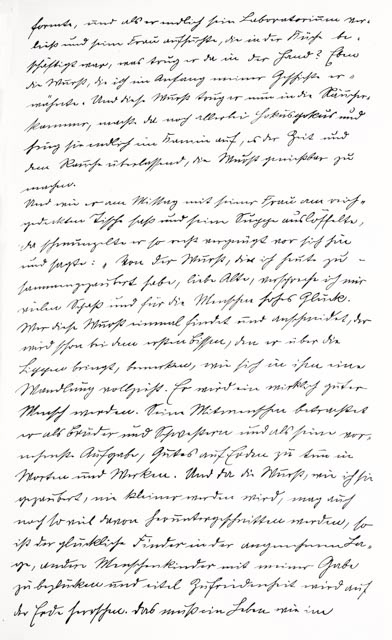 formte, und als er endlich sein Laboratorium ver-
ließ und seine Frau aufsuchte, die in der Küche be-
schäftigt war, was trug er da in der Hand? Eben
die Wurst, die ich im Anfang meiner Geschichte er-
wähnte. Und diese Wurst trug er nun in die Räucher-
kammer, machte da noch allerlei Hokuspokus und
hing sie endlich im Kamin auf, es der Zeit und
dem Rauche überlassend, die Wurst genießbar zu
machen.
Und wie er am Mittag mit seiner Frau am reich
gedeckten Tische saß und seine Suppe auslöffelte,
da schmunzelte er so recht vergnügt vor sich hin
und sagte: „Von der Wurst, die ich heute zu-
sammengezaubert habe, liebe Alte, verspreche ich mir
vielen Spaß und für die Menschen hohes Glück.
Wer diese Wurst einmal findet und anschneidet, der
wird schon bei dem ersten Bissen, den er über die
Lippen bringt, bemerken, wie sich in ihm eine
Wandlung vollzieht. Er wird ein wirklich guter
Mensch werden. Seine Mitmenschen betrachtet
er als Brüder und Schwestern und als seine vor-
nehmste Aufgabe, Gutes auf Erden zu tun in
Worten und Werken. Und da die Wurst, wie ich sie
gezaubert, nie kleiner werden wird, mag auch
noch so viel davon heruntergeschnitten werden, so
ist der glückliche Finder in der angenehmen La-
ge, andere Menschenkinder mit meiner Gabe
zu beglücken und eitel Zufriedenheit wird auf
der Erde herrschen. Das muß ein Leben wie im